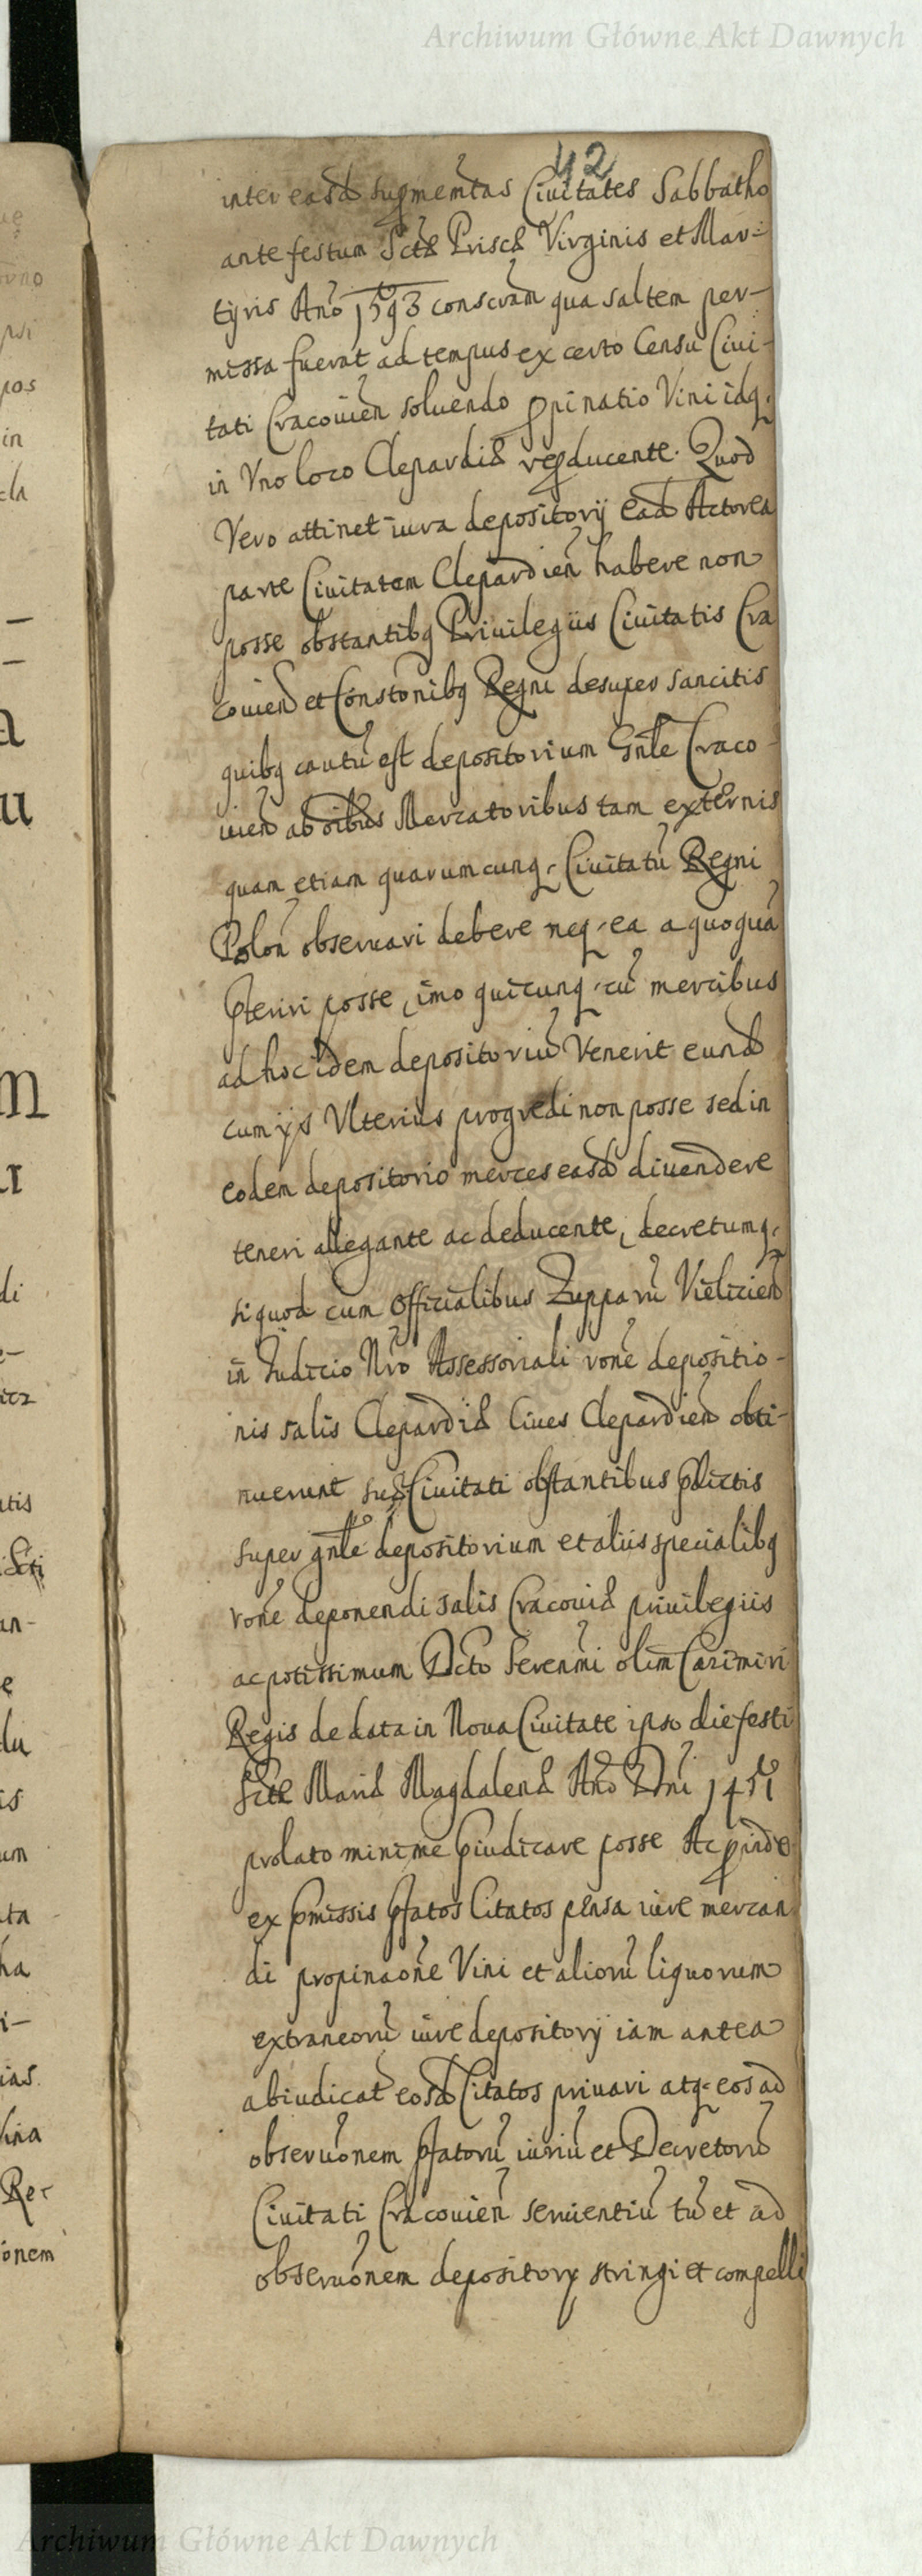 Archiwum Główne Akt Dawnych
42
inter easd supmemtas Civitates Sabbatho
ante festum Sctæ Priscæ Virginis et Mar-
tyris Ano 1593 conscram qua saltem per-
missa fuerat ad tempus ex certo Censu Civi-
tati Cracouien soluendo ppinatio Vini idq.
in Vno loco Clepardiæ reproducente. Quod
Vero attinet iura depositorij ead Actorea
parte Ciuitatem Clepardien habere non
posse obstantibq Priuilegiis Ciuitatis Cra
couien et Constonibq Regni desuper sancitis
quibq cautu est depositorium Gnle Craco-
uien ab oibus Mercatoribus tam externis
quam etiam quarumcunq. Ciuitatu Regni
Polon obseruari debere neq. ea a quoqua
pteriri posse, imo quicunq. cu mercibus
ad hoc idem depositoriu Venerit eund
cum ijs Vlterius progredi non posse sed in
eodem depositorio merces easd diuendere
teneri allegante ac deducente, decretumq.
siquod cum Officialibus Zupparu Vieliciен
in Iudicio Nro Assessoriali rone depositio-
nis salis Clepardiæ Ciues Clepardien obti-
nuerunt Ciuitati obstantibus pdictis
super gnle depositorium et aliis specialibq
rone deponendi salis Cracouiæ priuilegiis
ac potissimum Dcto Serenmi olim Casimiri
Regis de data in Noua Ciuitate ipso die festi
Scte Mariæ Magdalenæ Ano Dni 1451
prolato minime piudicare posse Ac pinde
ex pmissis pfatos Citatos iure mercan
di propinaone Vini et alioru liquorum
extraneoru iure depositorij iam antea
abiudicat eosd Citatos priuari atq. eos ad
obseruonem pfatoru iuriu et Decretoru
Ciuitati Cracouien seruientiu tu et ad
obseruonem depositorij stringi et compelli
Archiwum Główne Akt Dawnych